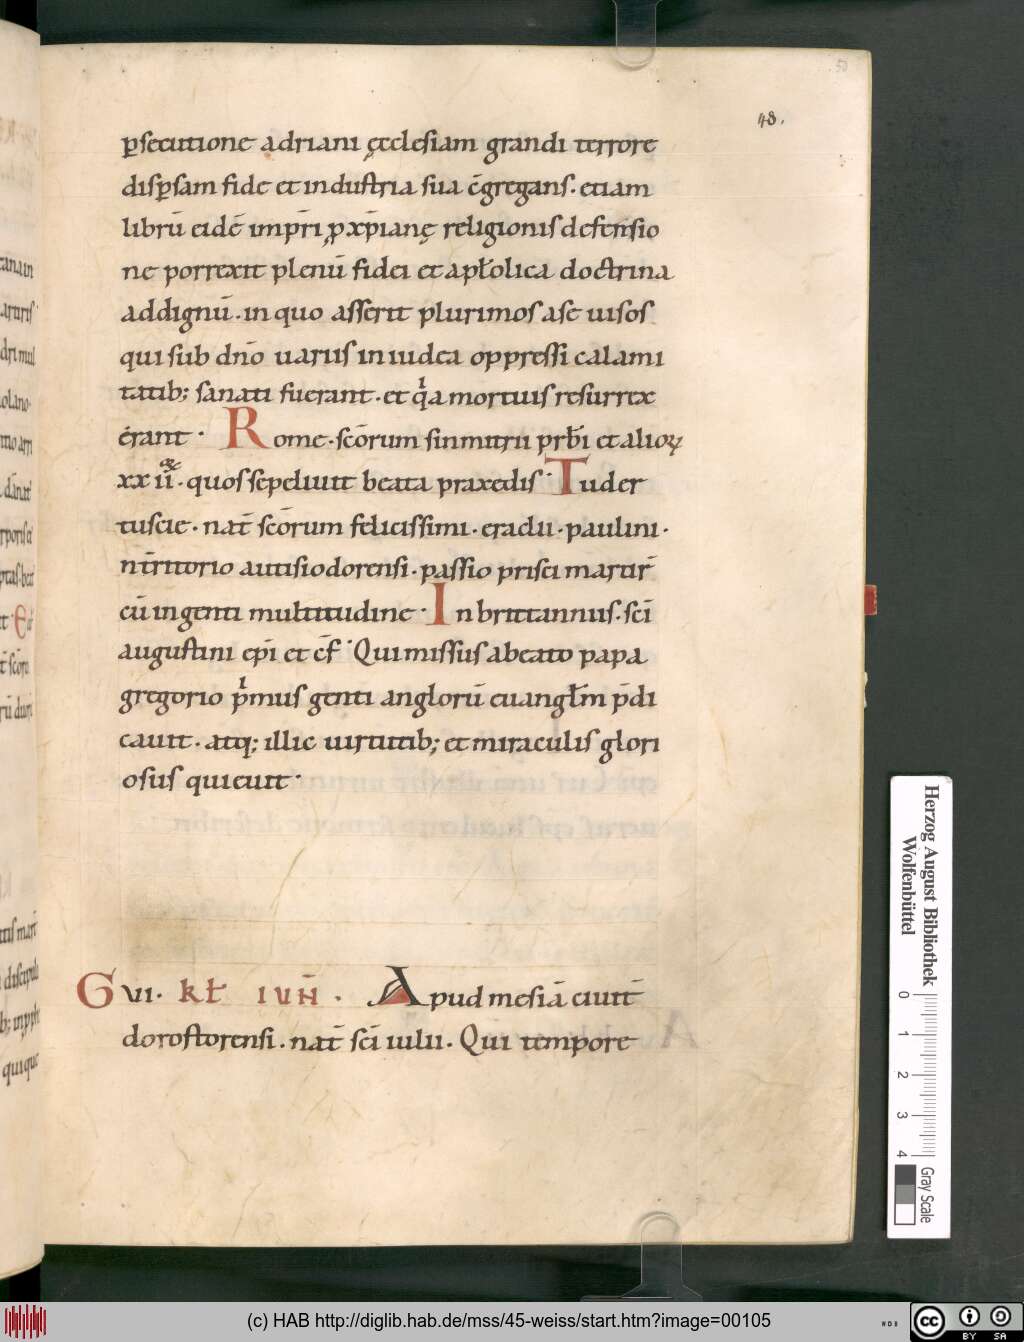 48.
50
ꝑsecutione adriani ęcclesiam grandi terrore
disꝑsam fide et industria sua c̄gregans. etiam
librū eidē imp̄ri ꝓ xp̄ianę religionis defensio
ne porrexit plenū fidei et apłolica doctrina
addignū. in quo asserit plurimos ase uisos
qui sub dn̄o uariis in iudea oppressi calami
tatib; sanati fuerant. et qͥa mortuis resurrex
erant. Rome. sc̄orum sinmitrii prb̄i et alioꝝ
xx ii. quos sepeliuit beata praxedis. Tuder
tuscie. nat̄ sc̄orum felicissimi. eradii. paulini.
n̄ t̄ritorio autisiodorensi. passio prisci martir̄
cū ingenti multitudine. In brittanniis. sc̄i
augustini ep̄i et c̄f. Qui missus abeato papa
gregorio pͥmus genti anglorū euangłm p̄di
cauit. atq; illic uirtutib; et miraculis glori
osus quieuit.
G VI. KŁ IUN̄. Apud mesiā ciuit̄
dorostorensi. nat̄ sc̄i iulii. Qui tempore
Herzog August Bibliothek
Wolfenbüttel
0 1 2 3 4
Gray Scale
(c) HAB http://diglib.hab.de/mss/45-weiss/start.htm?image=00105
cc BY SA